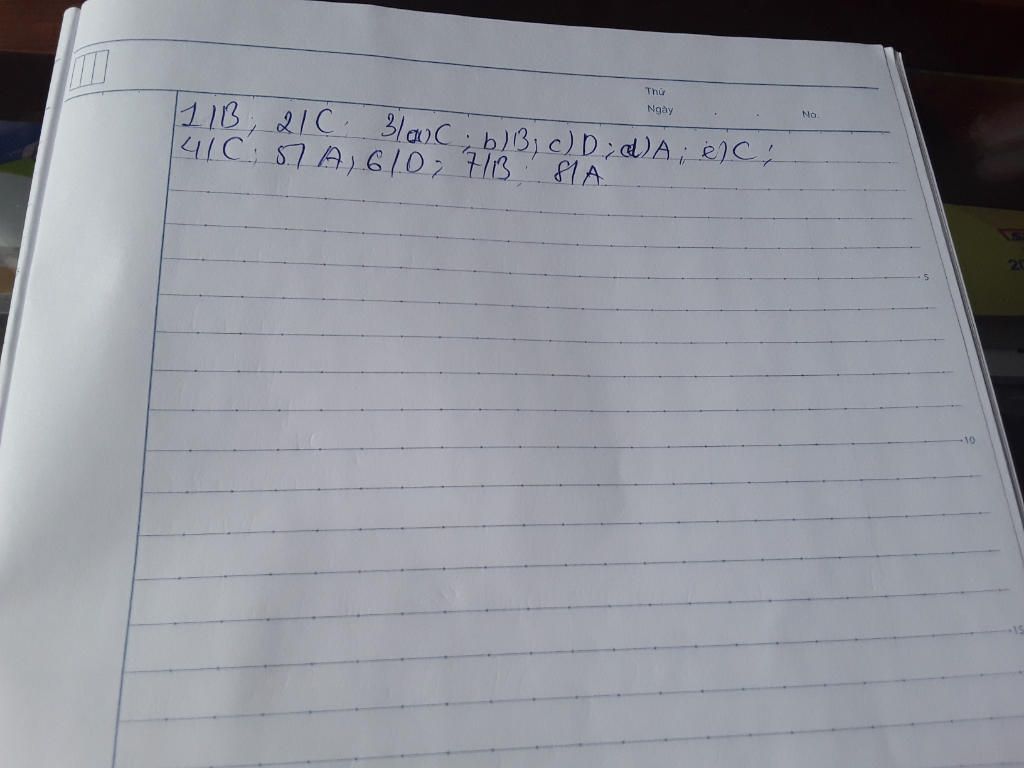 Thứ
Ngày . . No.
1/B; 2/C; 3/a)C; b)B; c)D; d)A; e)C;
4/C; 5/A; 6/D; 7/B; 8/A
5
10
15